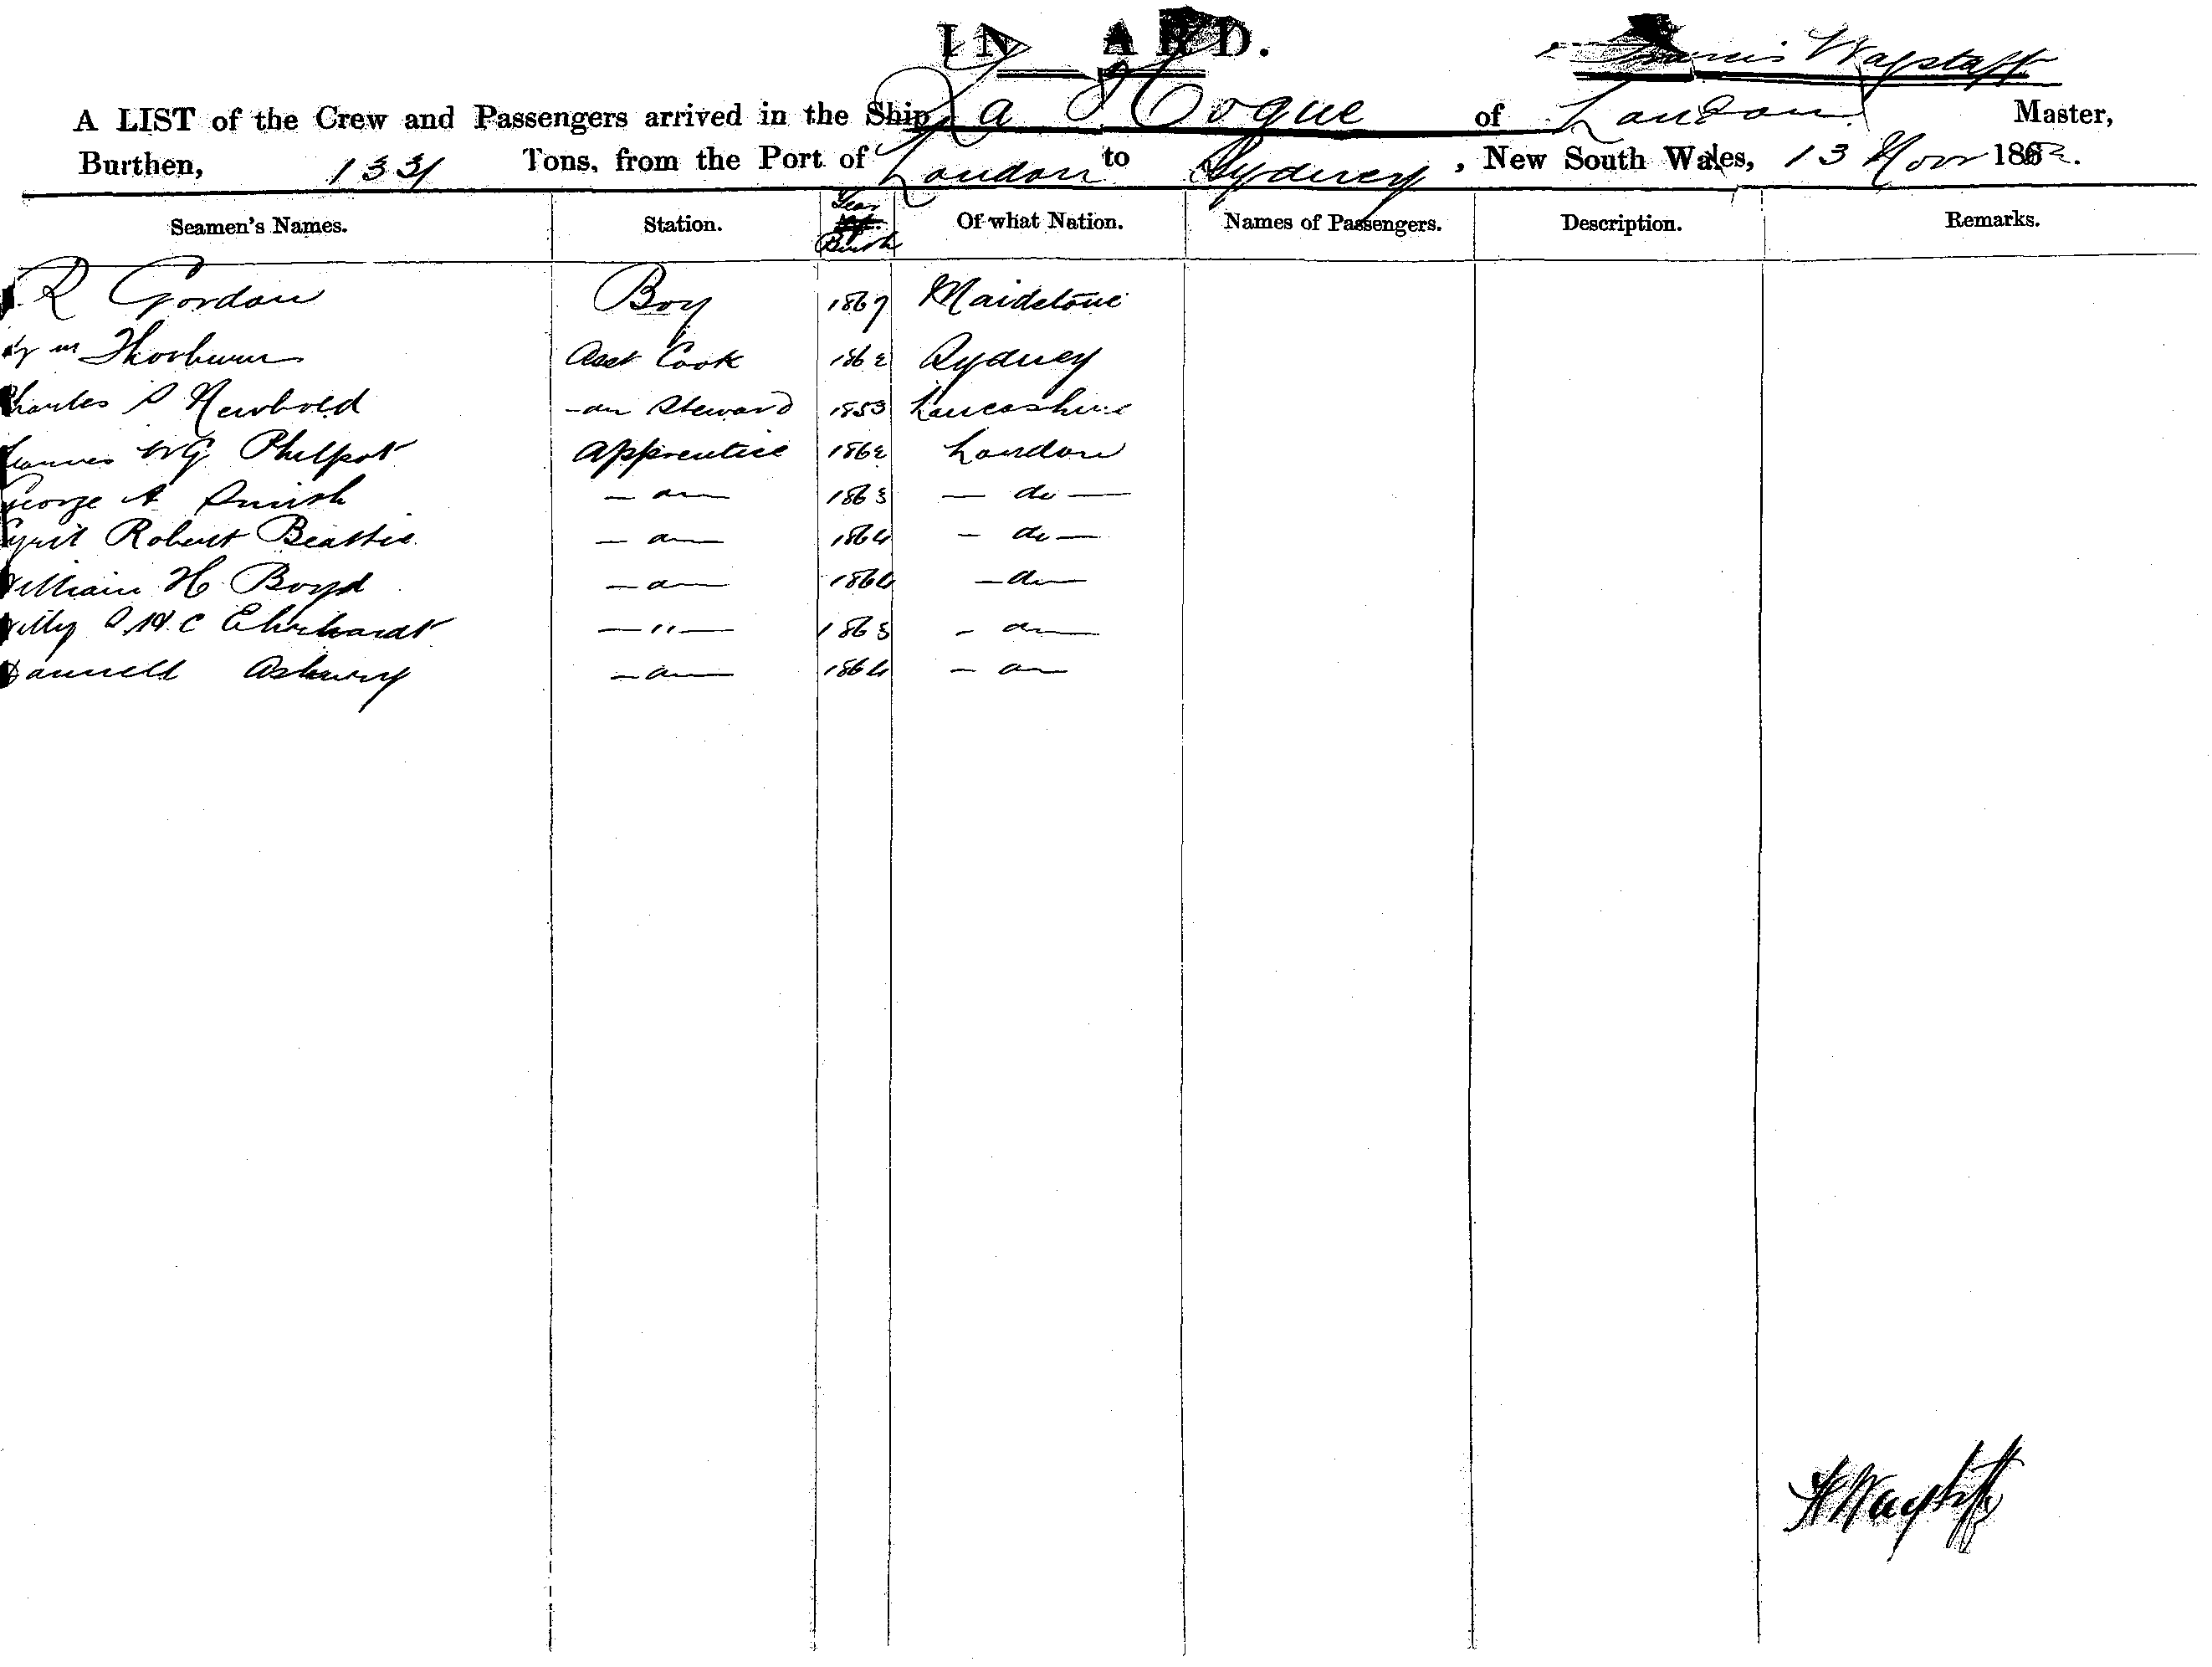 INWARD.
Francis Wagstaff
A LIST of the Crew and Passengers arrived in the Ship La Hogue of London Master,
Burthen, 1331 Tons, from the Port of London to Sydney, New South Wales, 13 Novr 1882.
Seamen's Names. Station. Year of Birth Of what Nation. Names of Passengers. Description. Remarks.
R Gordon Boy 1867 Maidstone
Wm Thorburn Asst Cook 1862 Sydney
Charles S Newbold -do Steward 1853 Lancashire
WG Philpot Apprentice 1862 London
George A Smith - do - 1863 - do -
Cyril Robert Beattie - do - 1864 - do -
William H Boyd - do - 1864 - do -
Willy C Ehrhardt - " - 1863 - do -
Asbury - do - 1864 - do -
Wagstaff